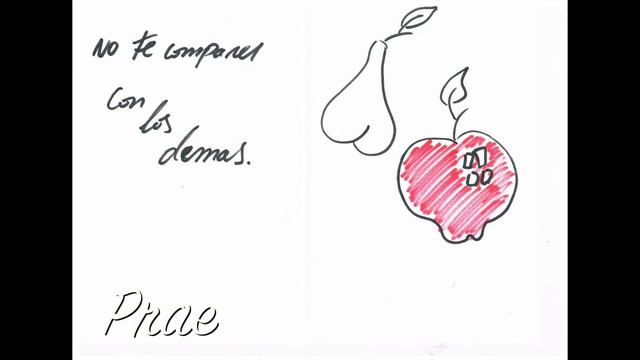 No te compares
con
los
demas.
Prae